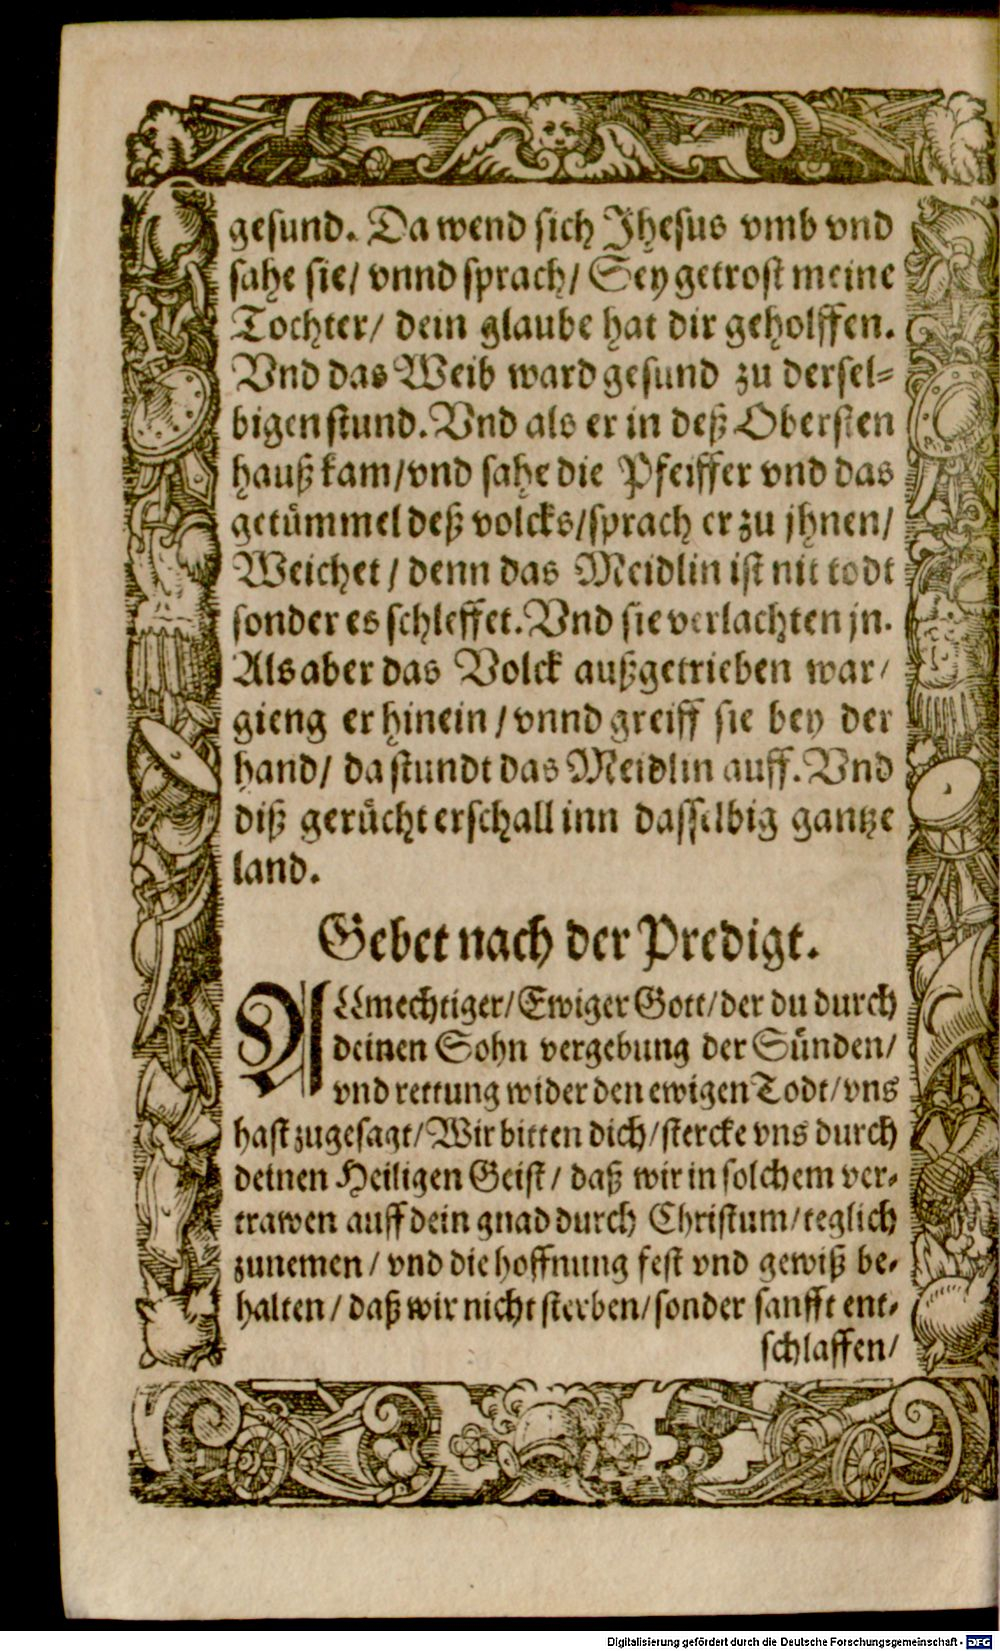 gesund. Da wend sich Jhesus vmb vnd
sahe sie/ vnnd sprach/ Sey getrost meine
Tochter/ dein glaube hat dir geholffen.
Vnd das Weib ward gesund zu dersel-
bigen stund. Vnd als er in deß Obersten
hauß kam/ vnd sahe die Pfeiffer vnd das
getümmel deß volcks/ sprach er zu jhnen/
Weichet/ denn das Meidlin ist nit todt
sonder es schleffet. Vnd sie verlachten jn.
Als aber das Volck außgetrieben war/
gieng er hinein/ vnnd greiff sie bey der
hand/ da stundt das Meidlin auff. Vnd
diß gerücht erschall inn dasselbig gantze
land.
Gebet nach der Predigt.
ALlmechtiger/ Ewiger Gott/ der du durch
deinen Sohn vergebung der Sünden/
vnd rettung wider den ewigen Todt/ vns
hast zugesagt/ Wir bitten dich/ stercke vns durch
deinen Heiligen Geist/ daß wir in solchem ver-
trawen auff dein gnad durch Christum/ teglich
zunemen/ vnd die hoffnung fest vnd gewiß be-
halten/ daß wir nicht sterben/ sonder sanfft ent-
schlaffen/
Digitalisierung gefördert durch die Deutsche Forschungsgemeinschaft - DFG